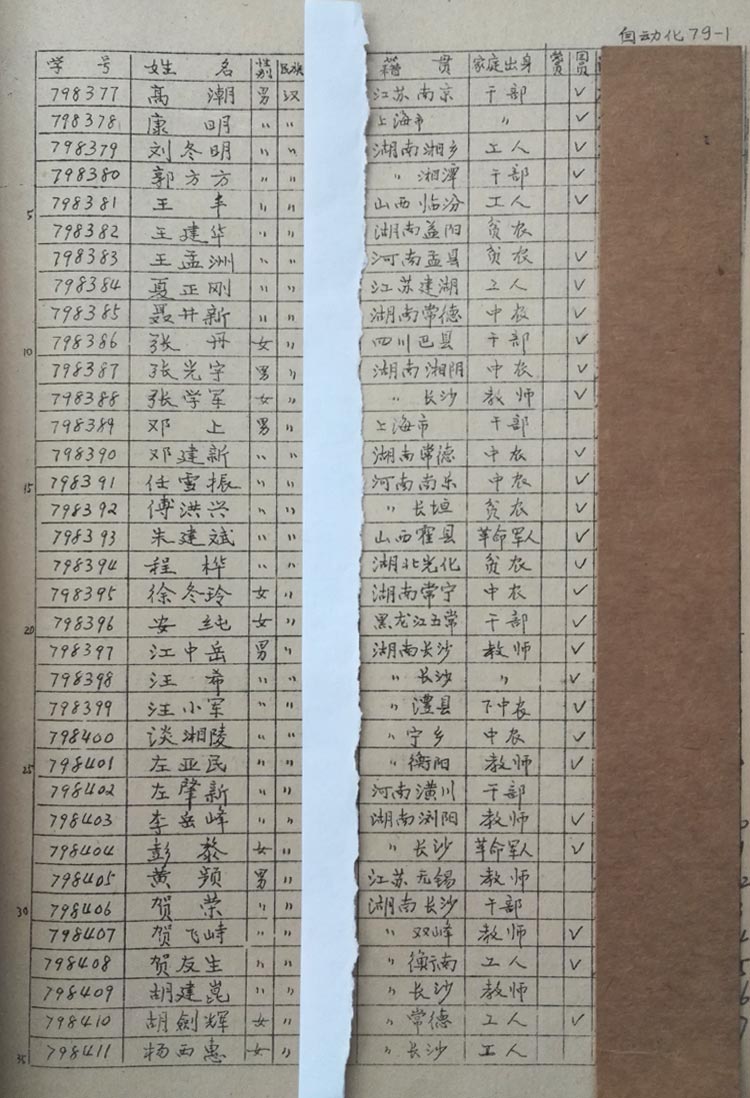 自动化79-1
学 号 姓 名 性别 民族 籍 贯 家庭出身 党员 团员
798377 高 潮 男 汉 江苏南京 干部 ✓
798378 康 明 〃 〃 上海市 〃 ✓
798379 刘冬明 〃 〃 湖南湘乡 工人 ✓
798380 郭方方 〃 〃 〃 湘潭 干部 ✓
5 798381 王 丰 〃 〃 山西临汾 工人 ✓
798382 王建华 〃 〃 湖南益阳 贫农
798383 王孟洲 〃 〃 河南孟县 贫农 ✓
798384 夏正刚 〃 〃 江苏建湖 工人 ✓
798385 聂井新 〃 〃 湖南常德 中农 ✓
10 798386 张 丹 女 〃 四川巴县 干部 ✓
798387 张光宇 男 〃 湖南湘阴 中农 ✓
798388 张学军 女 〃 〃 长沙 教师 ✓
798389 邓 上 男 〃 上海市 干部
798390 邓建新 〃 〃 湖南常德 中农 ✓
15 798391 任雪振 〃 〃 河南南乐 中农 ✓
798392 傅洪兴 〃 〃 〃 长垣 贫农 ✓
798393 朱建斌 〃 〃 山西霍县 革命军人 ✓
798394 程 桦 〃 〃 湖北光化 贫农 ✓
798395 徐冬玲 女 〃 湖南常宁 中农 ✓
20 798396 安 纯 女 〃 黑龙江五常 干部 ✓
798397 江中岳 男 〃 湖南长沙 教师 ✓
798398 汪 希 〃 〃 〃 长沙 〃 ✓
798399 汪小军 〃 〃 〃 澧县 下中农 ✓
798400 淡湘陵 〃 〃 〃 宁乡 中农 ✓
25 798401 左亚民 〃 〃 〃 衡阳 教师 ✓
798402 左肇新 〃 〃 河南潢川 干部
798403 李岳峰 〃 〃 湖南浏阳 教师 ✓
798404 彭 黎 女 〃 〃 长沙 革命军人 ✓
798405 黄 颢 男 〃 江苏无锡 教师
30 798406 贺 荣 〃 〃 湖南长沙 干部
798407 贺飞峙 〃 〃 〃 双峰 教师 ✓
798408 贺友生 〃 〃 〃 衡南 工人 ✓
798409 胡建崑 〃 〃 〃 长沙 教师
798410 胡剑辉 女 〃 〃 常德 工人 ✓
35 798411 杨西惠 女 〃 〃 长沙 工人